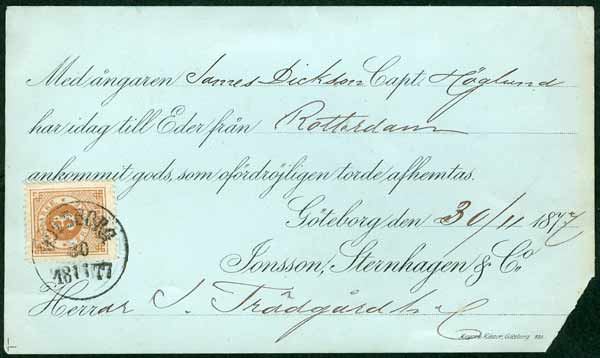 Med ångaren James Dickson Capt. Höglund
har idag till Eder från Rotterdam
ankommit gods, som ofördröjligen torde afhemtas.
Göteborg den 30/11 1877
Jonsson, Sternhagen & Co.
Herrar J. Trädgårdh & C
GÖTEBORG
30
1811 77
Göteborg